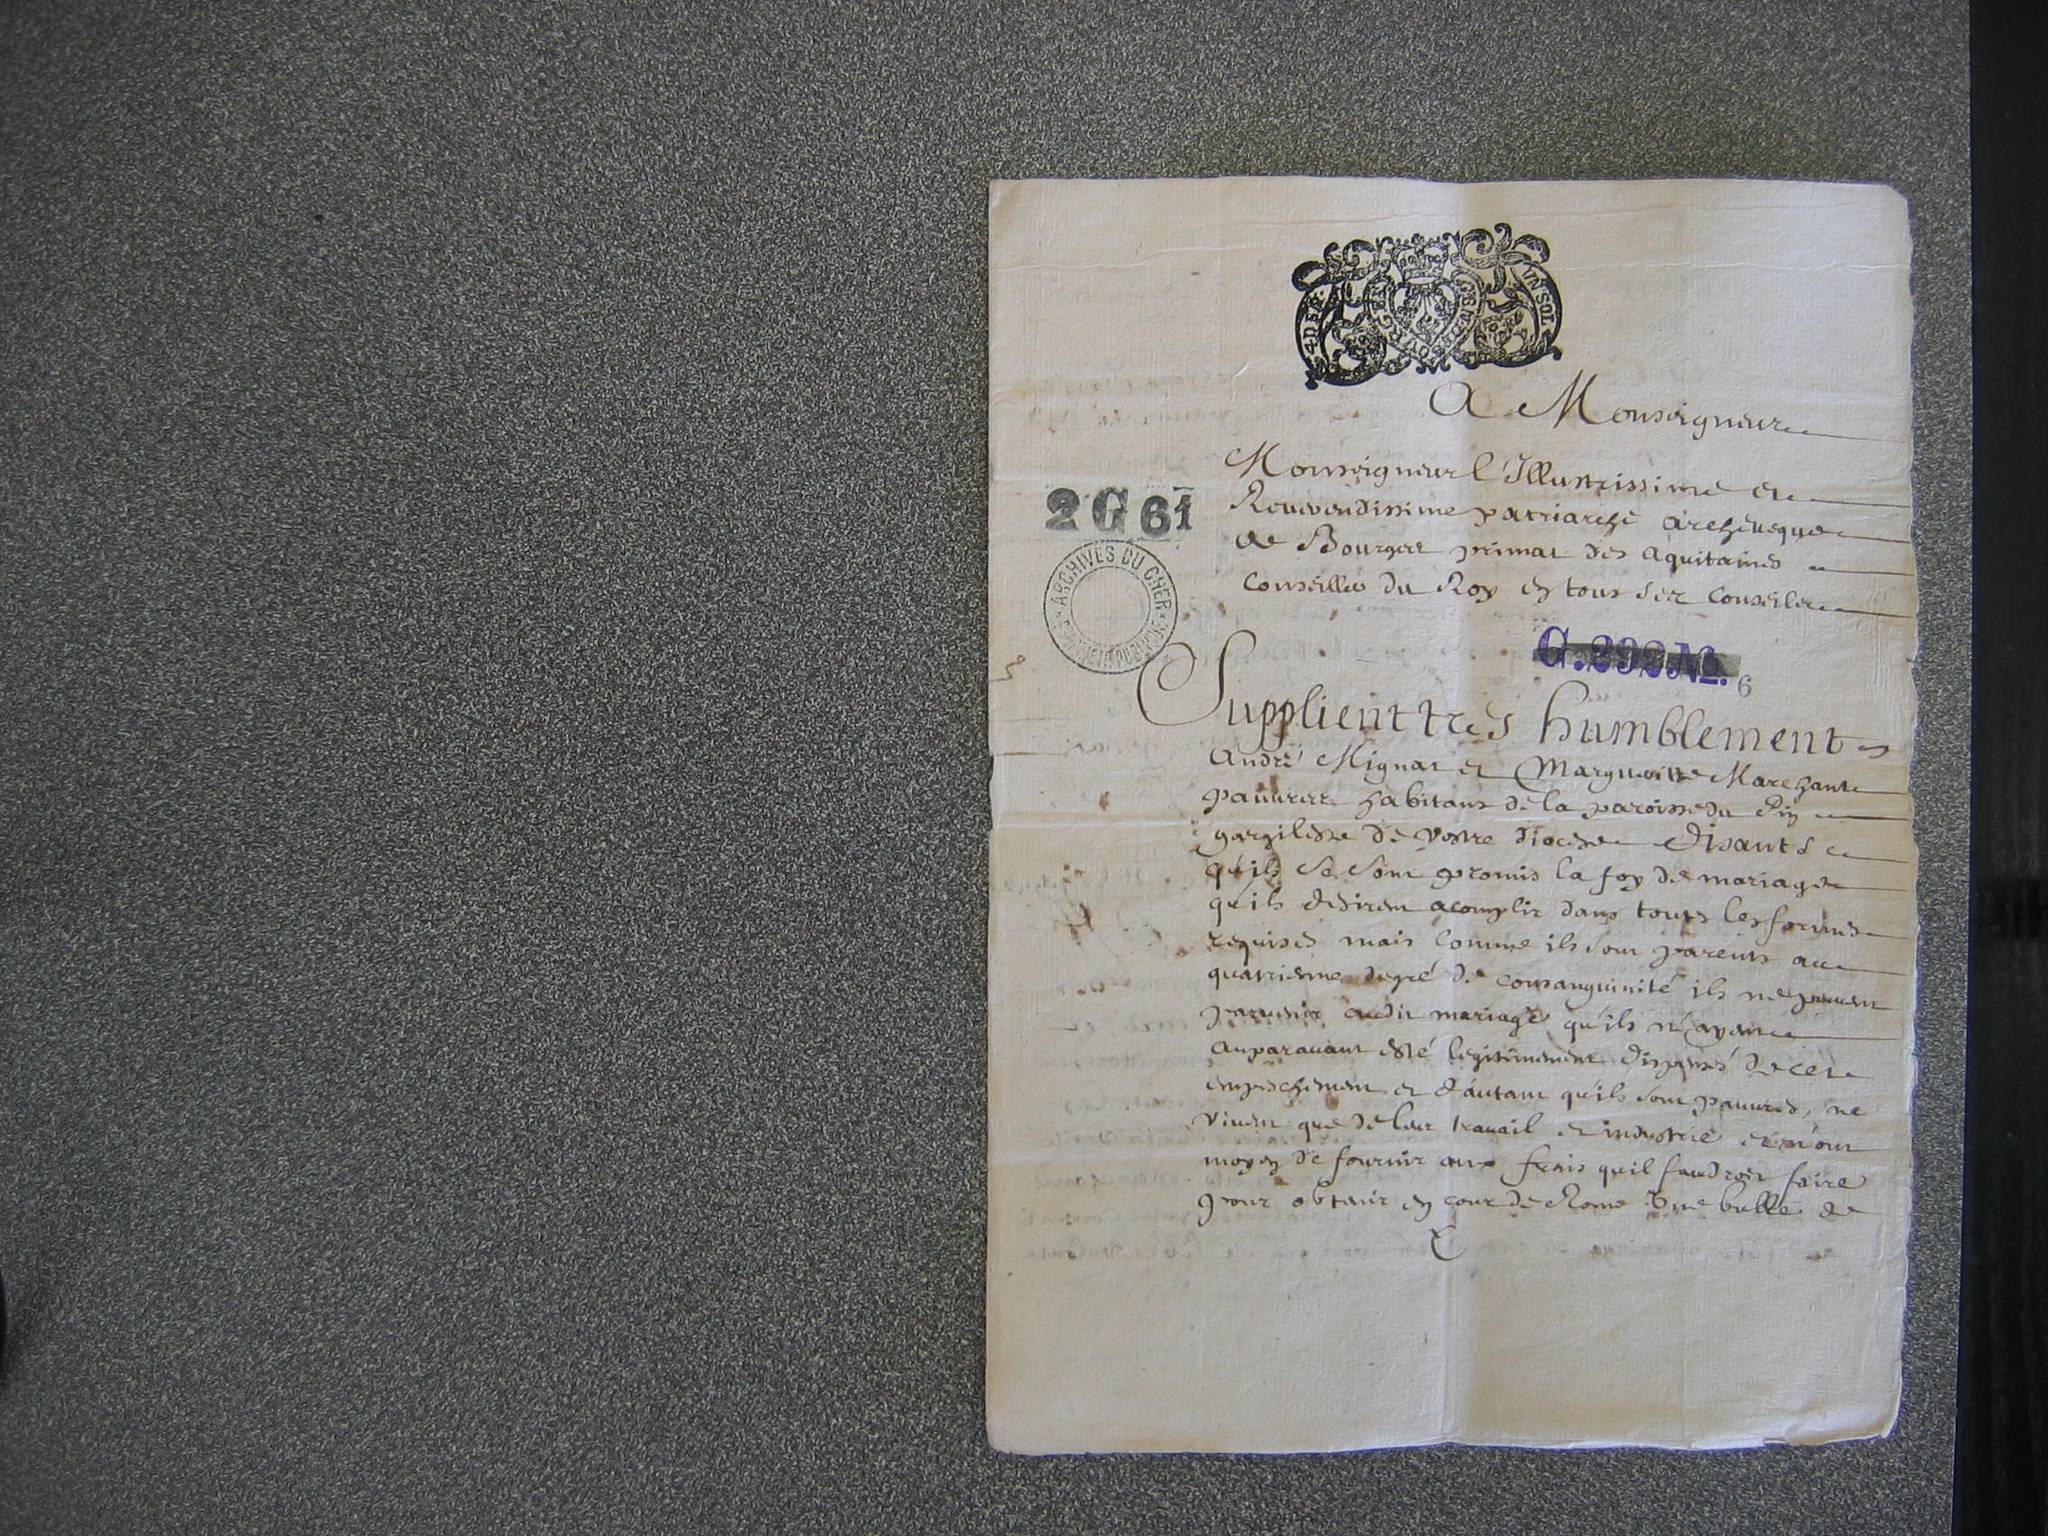 UN SOL
A Monseigneur
Monseigneur l'Illustrissime et
Reverendissime patriarche archeveque
de Bourges primat des aquitaines
Conseiller du Roy en tous ses conseiles
2 G 61
ARCHIVES DU CHER
G.292 No. 6
Supplient tres humblement
André Mignat et Margueitte Marchant
pauvres habitans de la paroisse du Pin
gargilesse de vostre diocese Disants
qu'ils se sont promis la foy de mariage
qu'ils desirent acomplir dans toutes les formes
requises mais comme ils sont parents au
quatrieme degré de consanguinité ils ne peuvent
parvenir audit mariage qu'ils n'ayent
auparavant esté legitimement dispensé de cet
empeschement et d'autant qu'ils sont pauvres, ne
vivent que de leur travail et industrie et n'ont
moyen de fournir aux frais qu'il faudroit faire
pour obtenir en cour de Rome Une bulle de